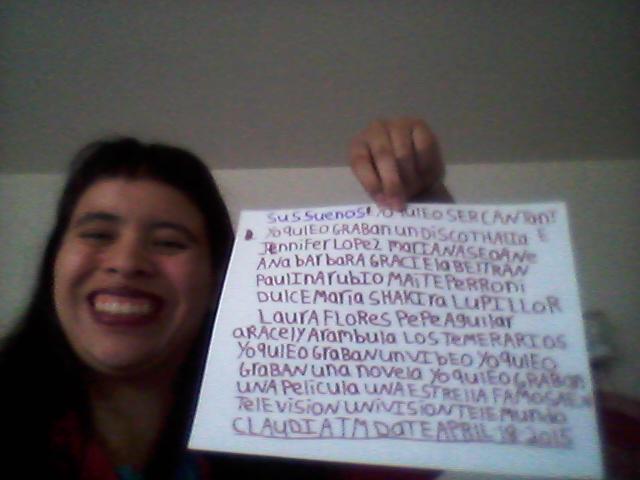 SUSSUENOS! YOQUIEO SERCANTON!
YOQUIEO GRABAN UN DISCOTHALIA E
JENNIFER LOPEZ MARIANASEOANE
ANA BARBARA GRACIELA BELTRAN
PAULINA RUBIO MAITE PERRONI
DULCE MARIA SHAKIRA LUPILLO R
LAURA FLORES PEPE AGUILAR
ARACELY ARAMBULA LOS TEMERARIOS
YOQUIEO GRABAN UN VIDEO YOQUIEO
GRABAN UNA NOVELA YOQUIEO GRABAN
UNA PELICULA UNA ESTRELLA FAMOSA EN
TELEVISION UNIVISION TELEMUNDO
CLAUDIA T M DATE APRIL 18 2015